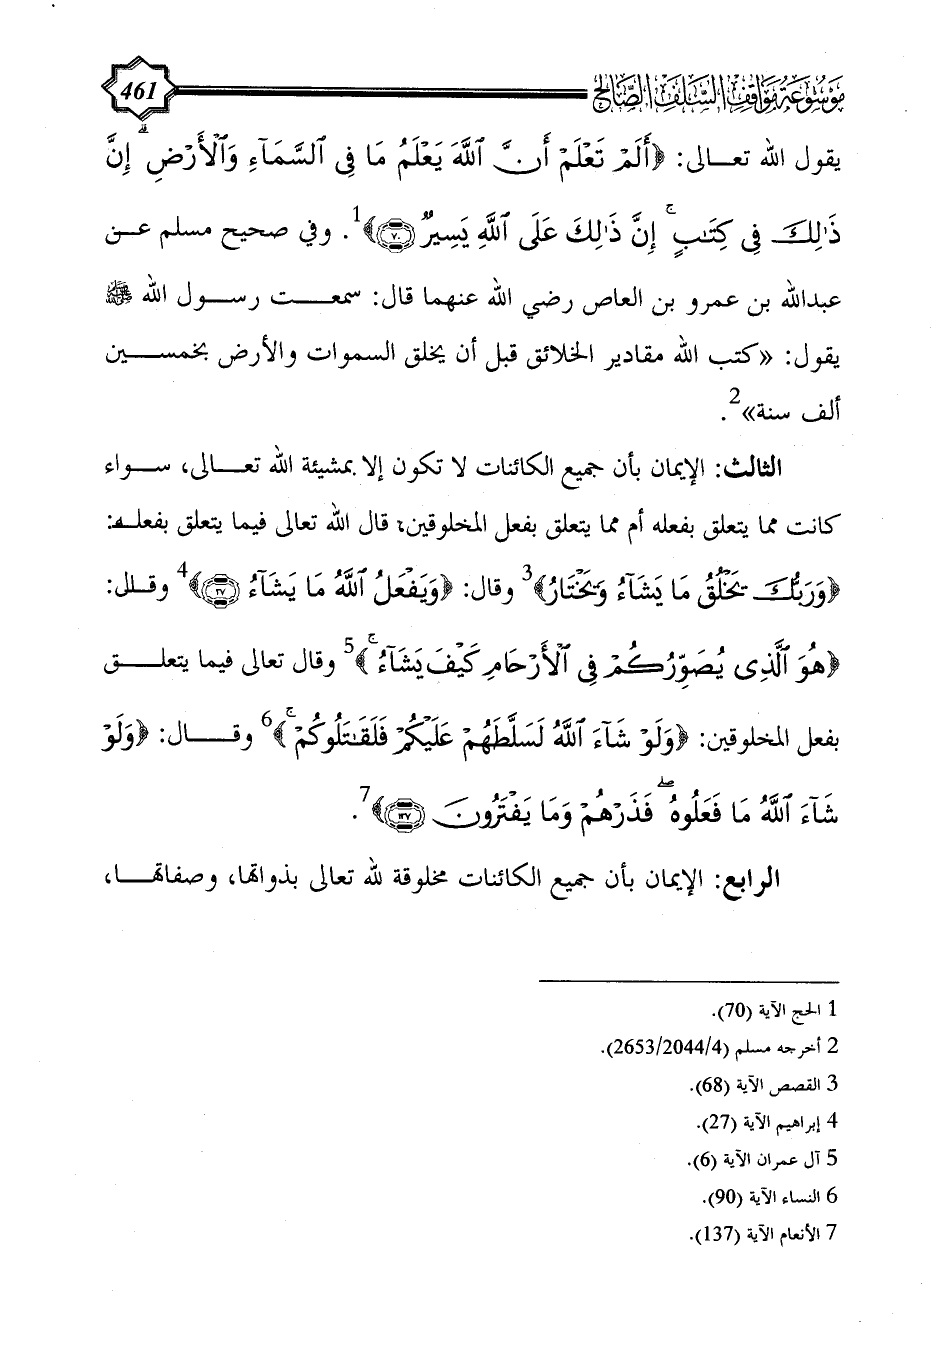 موسوعة مواقف السلف الصالح 461
يقول الله تعالى: ﴿أَلَمْ تَعْلَمْ أَنَّ ٱللَّهَ يَعْلَمُ مَا فِى ٱلسَّمَآءِ وَٱلْأَرْضِ ۗ إِنَّ
ذَٰلِكَ فِى كِتَٰبٍ ۚ إِنَّ ذَٰلِكَ عَلَى ٱللَّهِ يَسِيرٌ ۝٧٠﴾1. وفي صحيح مسلم عن
عبدالله بن عمرو بن العاص رضي الله عنهما قال: سمعت رسول الله ﷺ
يقول: «كتب الله مقادير الخلائق قبل أن يخلق السموات والأرض بخمسين
ألف سنة»2.
الثالث: الإيمان بأن جميع الكائنات لا تكون إلا بمشيئة الله تعالى، سواء
كانت مما يتعلق بفعله أم مما يتعلق بفعل المخلوقين؛ قال الله تعالى فيما يتعلق بفعله:
﴿وَرَبُّكَ يَخْلُقُ مَا يَشَآءُ وَيَخْتَارُ﴾3 وقال: ﴿وَيَفْعَلُ ٱللَّهُ مَا يَشَآءُ ۝٢٧﴾4 وقال:
﴿هُوَ ٱلَّذِى يُصَوِّرُكُمْ فِى ٱلْأَرْحَامِ كَيْفَ يَشَآءُ ۚ﴾5 وقال تعالى فيما يتعلق
بفعل المخلوقين: ﴿وَلَوْ شَآءَ ٱللَّهُ لَسَلَّطَهُمْ عَلَيْكُمْ فَلَقَٰتَلُوكُمْ ۚ﴾6 وقال: ﴿وَلَوْ
شَآءَ ٱللَّهُ مَا فَعَلُوهُ ۖ فَذَرْهُمْ وَمَا يَفْتَرُونَ ۝١٣٧﴾7.
الرابع: الإيمان بأن جميع الكائنات مخلوقة لله تعالى بذواتها، وصفاتها،
1 الحج الآية (70).
2 أخرجه مسلم (2653/2044/4).
3 القصص الآية (68).
4 إبراهيم الآية (27).
5 آل عمران الآية (6).
6 النساء الآية (90).
7 الأنعام الآية (137).